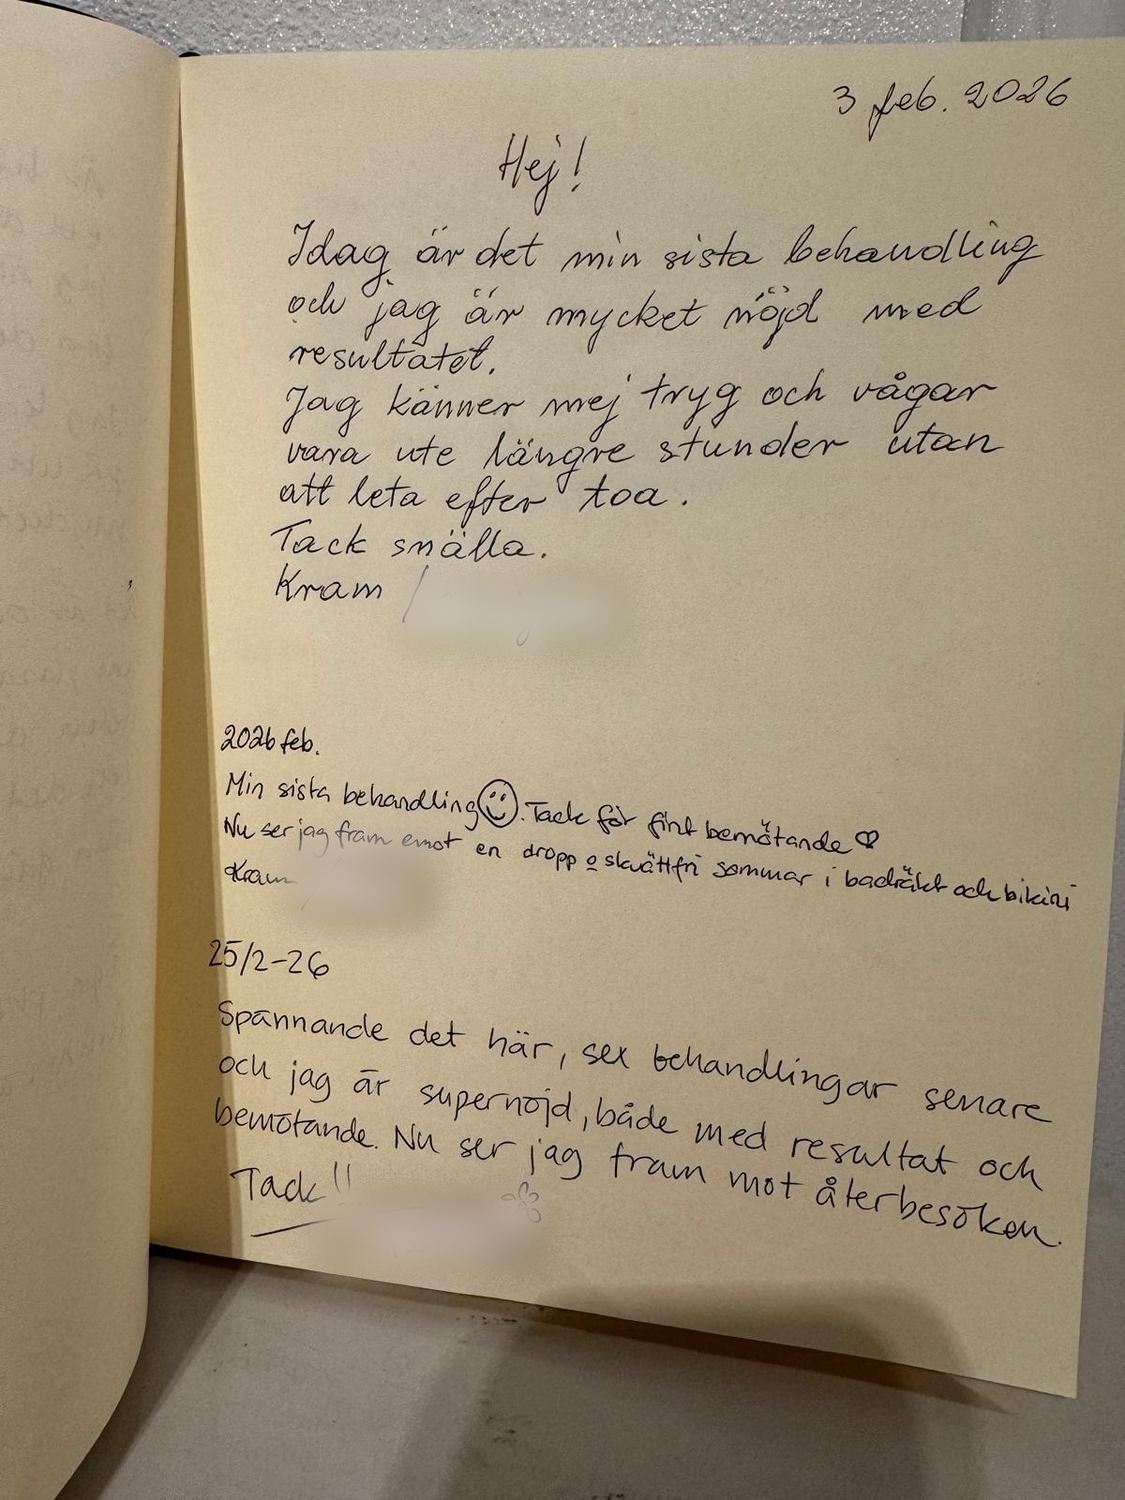 3 feb. 2026
Hej!
Idag är det min sista behandling
och jag är mycket nöjd med
resultatet.
Jag känner mej trygg och vågar
vara ute längre stunder utan
att leta efter toa.
Tack snälla.
Kram
2026 feb.
Min sista behandling☺. Tack för fint bemötande ♡
Nu ser jag fram emot en dropp o skvättfri sommar i baddräkt och bikini
Kram
25/2-26
Spännande det här, sex behandlingar senare
och jag är supernöjd, både med resultat och
bemötande. Nu ser jag fram mot återbesöken.
Tack!!